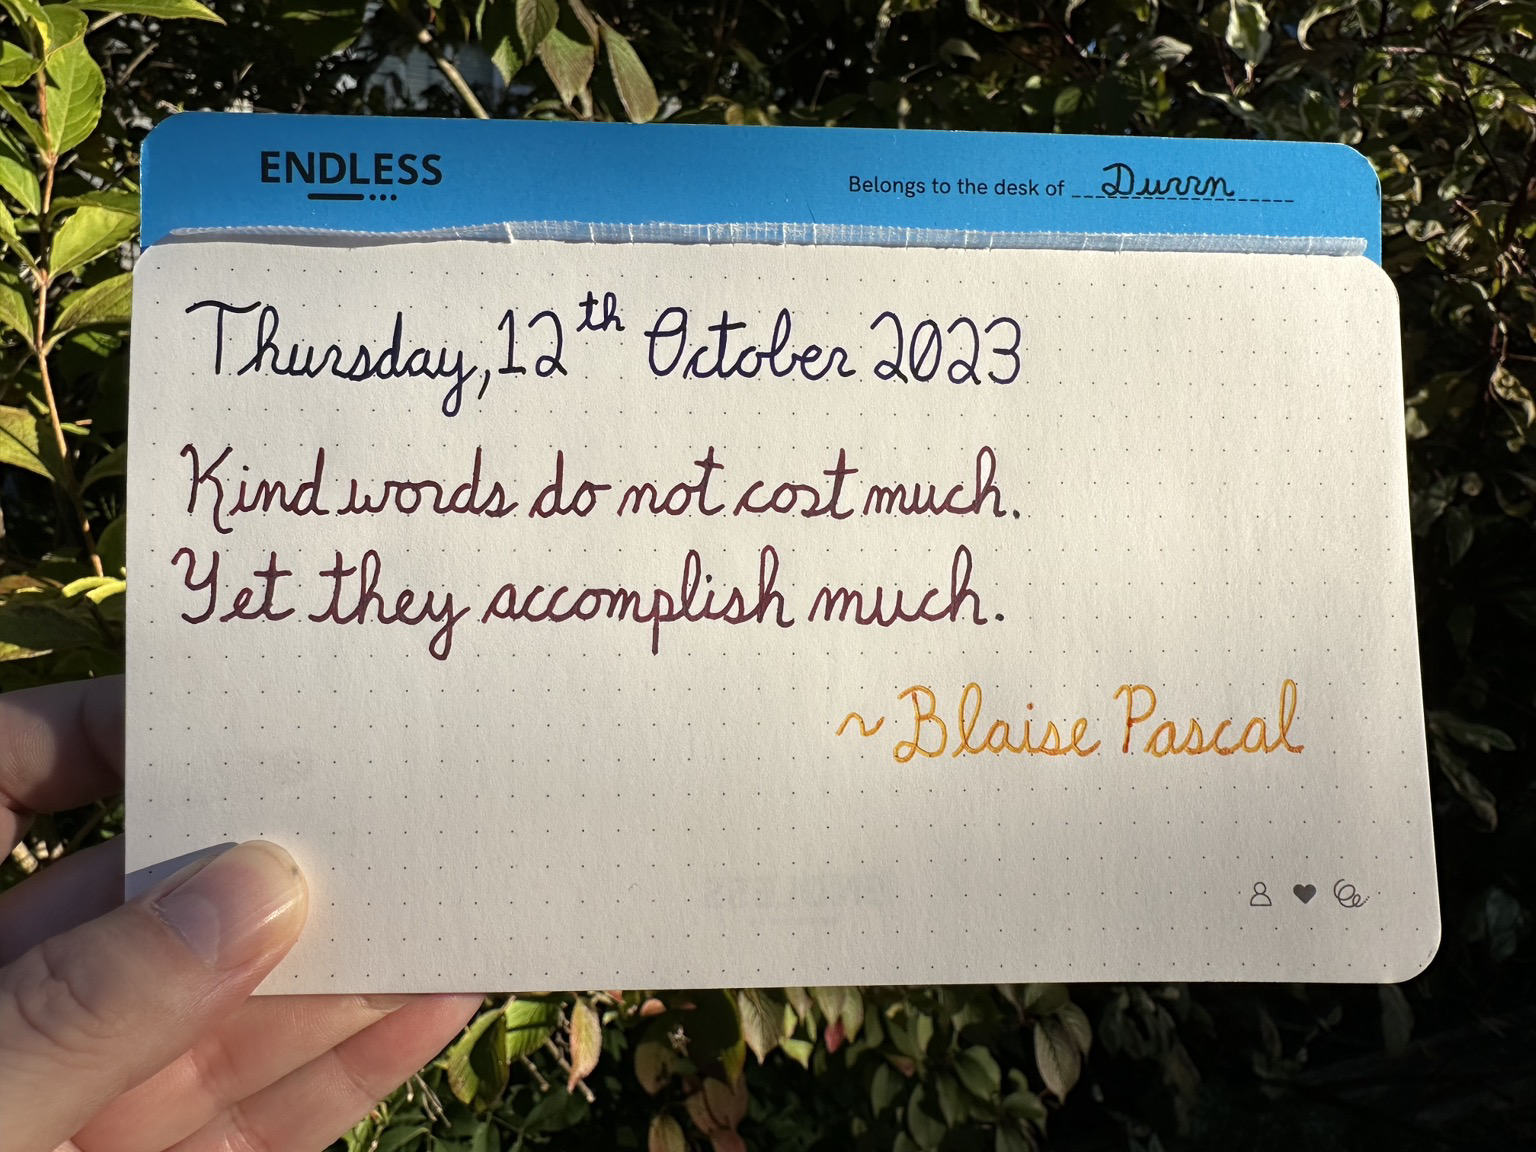 ENDLESS
Belongs to the desk of Durrn
Thursday, 12th October 2023
Kind words do not cost much.
Yet they accomplish much.
~Blaise Pascal